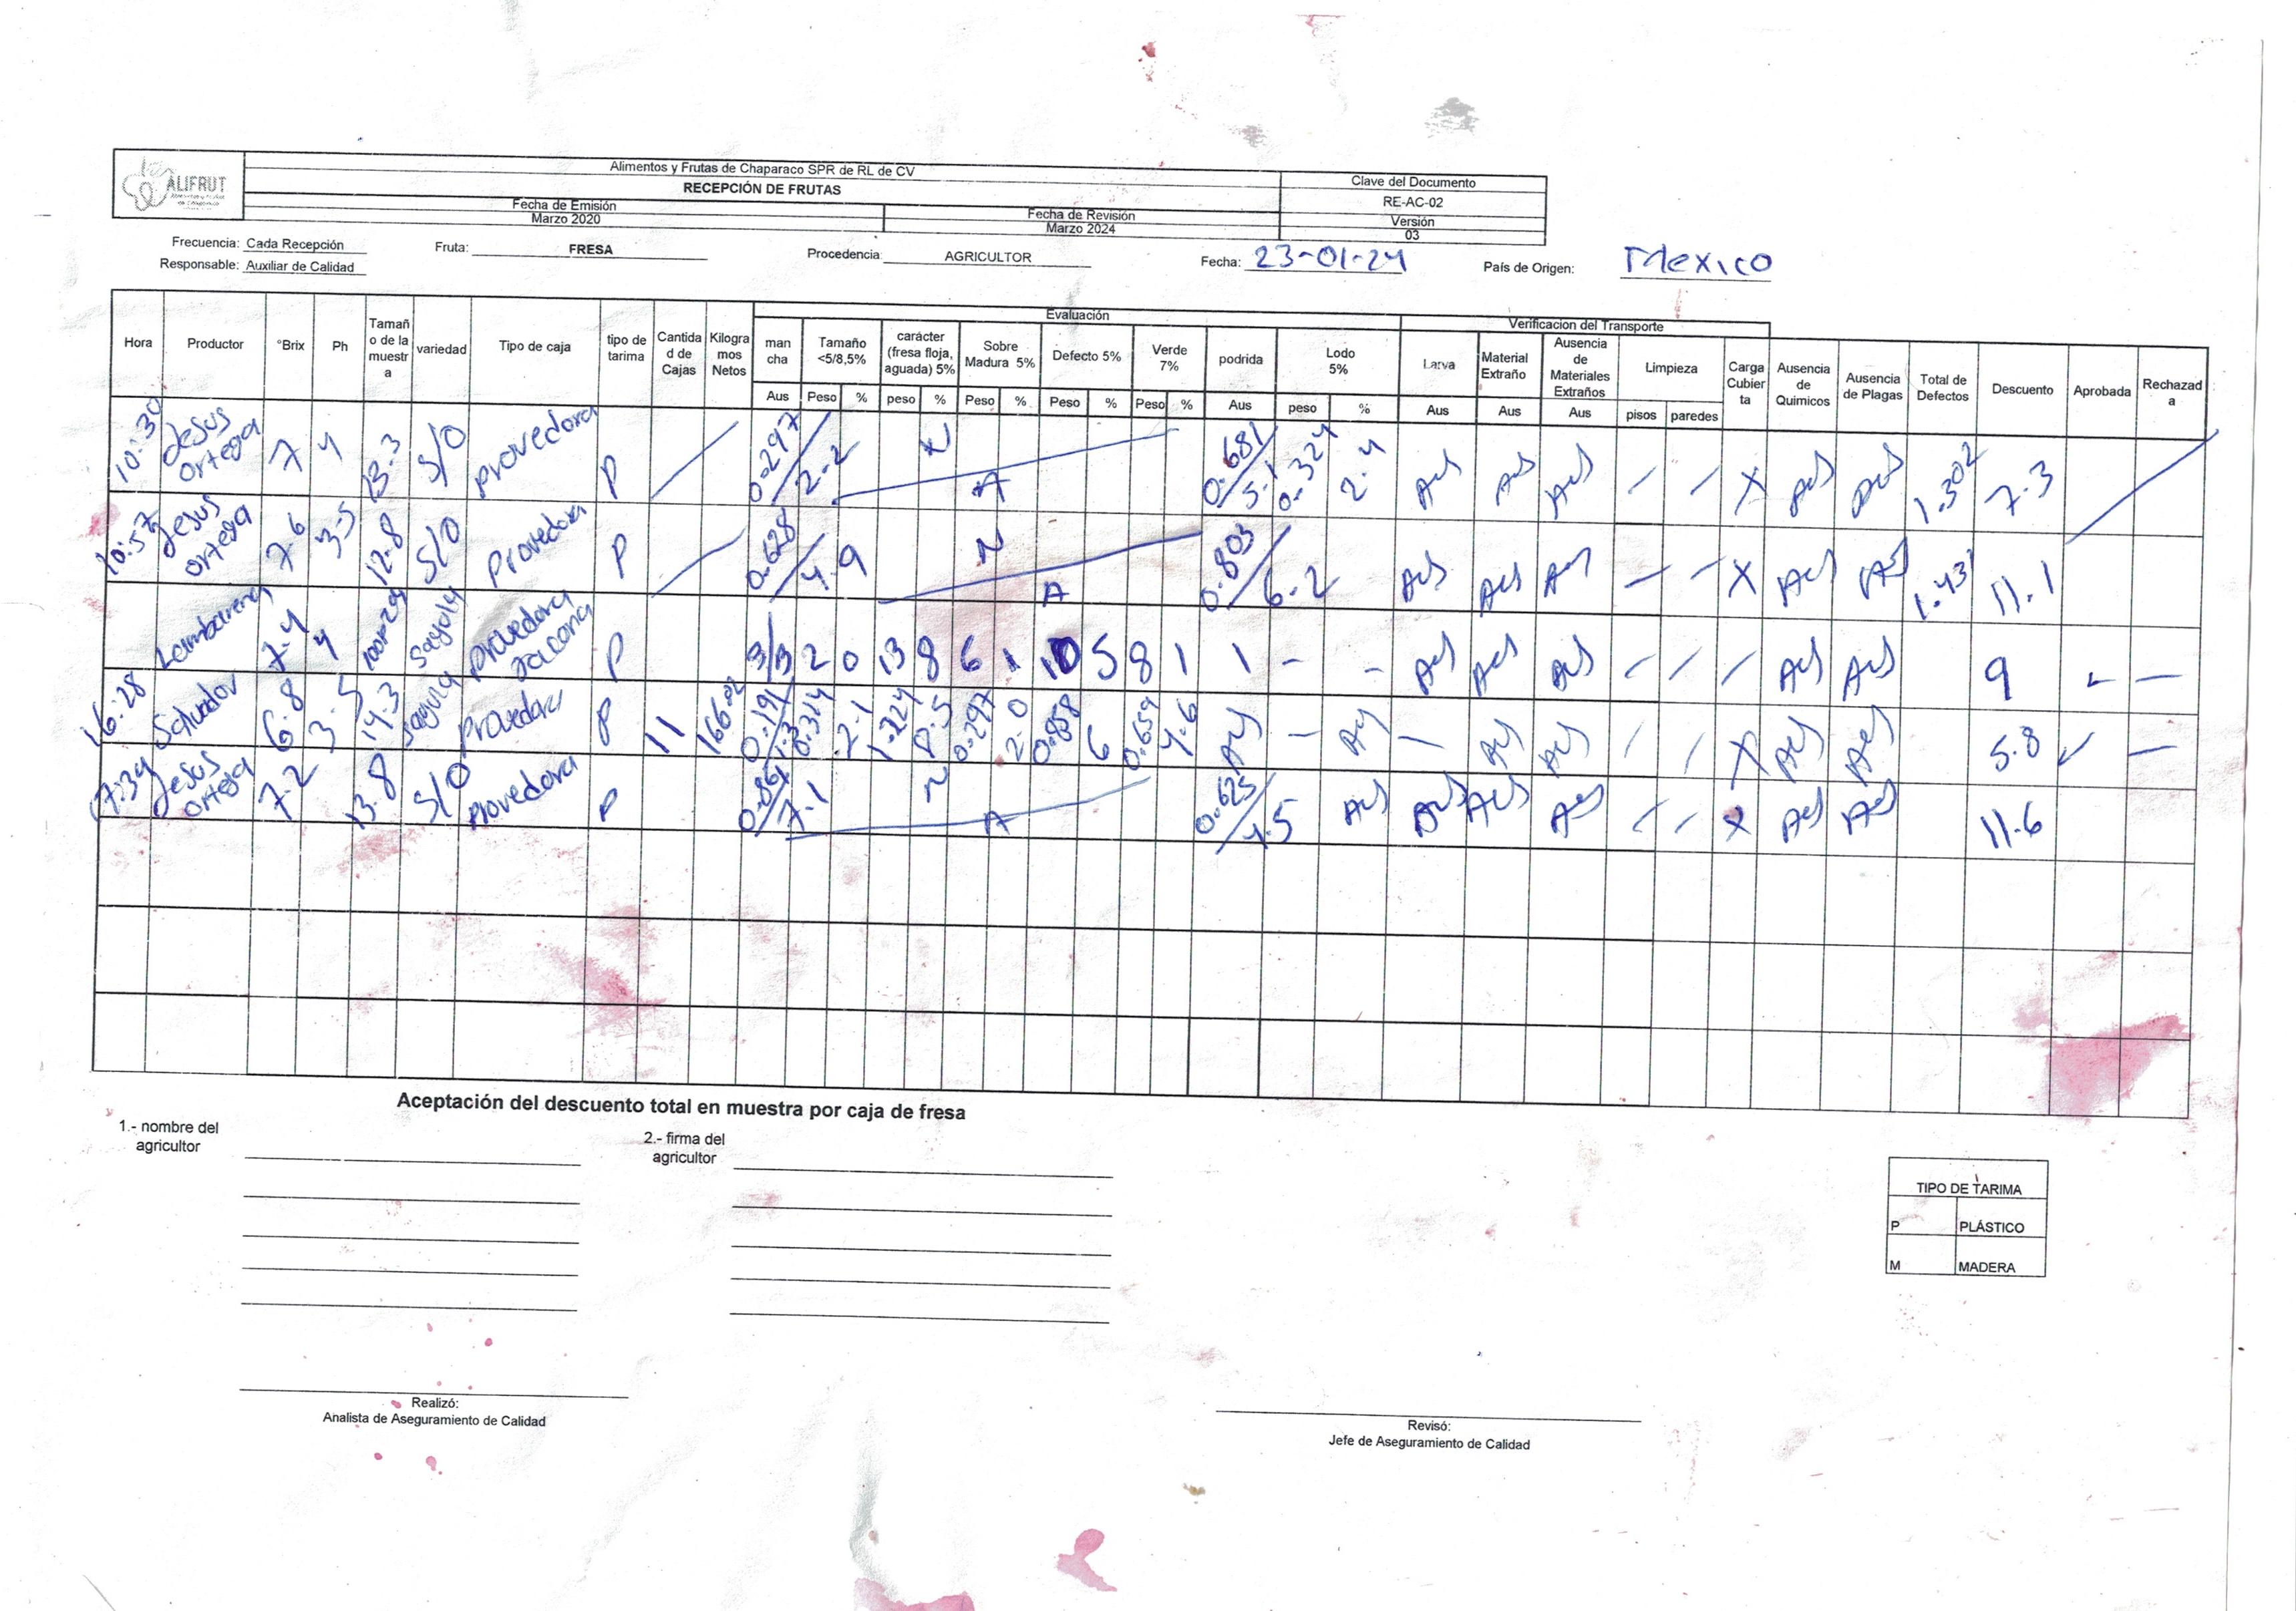 ALIFRUT
Alimentos y Frutas de Chaparaco SPR de RL de CV
RECEPCIÓN DE FRUTAS
Fecha de Emisión
Marzo 2020
Fecha de Revisión
Marzo 2024
Clave del Documento
RE-AC-02
Versión
03
Frecuencia: Cada Recepción
Responsable: Auxiliar de Calidad
Fruta: FRESA
Procedencia AGRICULTOR
Fecha: 23-01-24
País de Origen: Mexico
Evaluación
Verificacion del Transporte
Hora Productor °Brix Ph Tamaño de la muestra variedad Tipo de caja tipo de tarima Cantidad de Cajas Kilogramos Netos mancha Tamaño <5/8,5% carácter (fresa floja, aguada) 5% Sobre Madura 5% Defecto 5% Verde 7% podrida Lodo 5% Larva Material Extraño Ausencia de Materiales Extraños Limpieza Carga Cubierta Ausencia de Quimicos Ausencia de Plagas Total de Defectos Descuento Aprobada Rechazada
Aus Peso % peso % Peso % Peso % Peso % Aus peso % Aus Aus Aus pisos paredes
10:30 Jesus Ortega 7 4 13.3 S/O Provedora P 0.297/2.2 N A 0.681/5.1 0.324 2.4 Aus Aus Aus / / X Aus Aus 1.302 7.3
10:57 Jesus Ortega 7.6 3.5 12.8 S/O Provedora P 0.628/4.9 N A 0.803/6.2 Aus Aus Aus / / X Aus Aus 1.431 11.1
7.4 4 Provedora Jacona P 3/3 2 0 13 8 6 1 10 5 8 1 1 - - Aus Aus Aus / / / Aus Aus 9 ✓ —
16:28 Salvador 6.8 3.5 14.3 Provedora P 11 0.314 2.1 1.224 8.5 0.297 2.0 0.858 6 0.659 4.6 Aus - Aus / Aus Aus / / X Aus Aus 5.8 ✓ —
17:34 Jesus Ortega 7.2 13.8 S/O Provedora P 7.1 N A 0.625/4.5 Aus Aus Aus Aus / / X Aus Aus 11.6
Aceptación del descuento total en muestra por caja de fresa
1.- nombre del agricultor
2.- firma del agricultor
TIPO DE TARIMA
P PLÁSTICO
M MADERA
Realizó:
Analista de Aseguramiento de Calidad
Revisó:
Jefe de Aseguramiento de Calidad